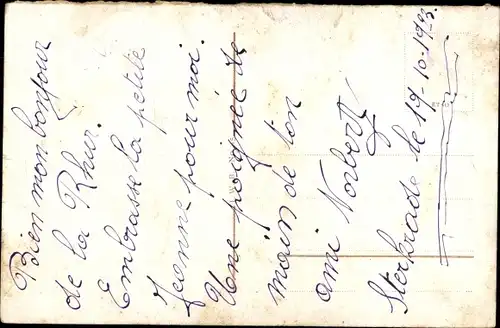 Bien mon bonjour
de la Rhur.
Embrasse la petite
Jeanne pour moi.
Une poignée de
main de ton
ami Norbert
Sterkrade le 17-10-1923.